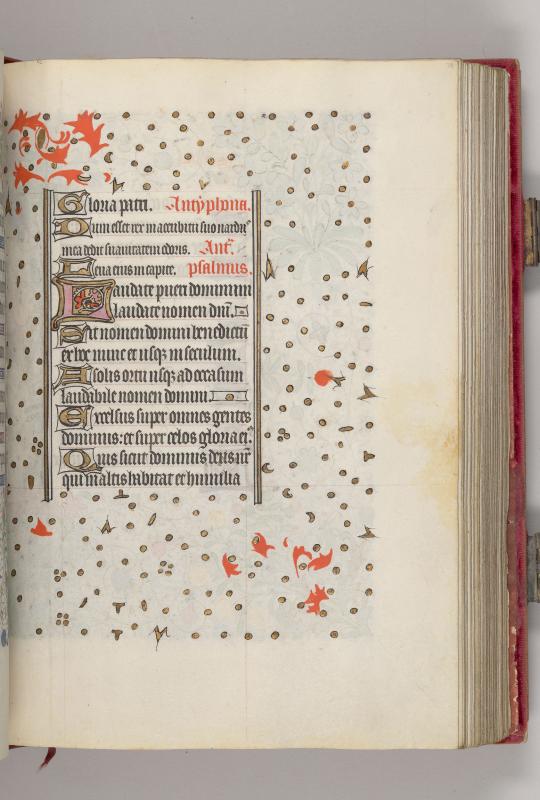 Gloria patri. Antyphona.
Dum esset rex in accubitu suo nardus
mea dedit suauitatem odoris. Ant.
Leua eius in capite. psalmus.
Laudate pueri dominum
laudate nomen dni.
Sit nomen domini benedictū
ex hoc nunc et usqꝫ in seculum.
A solis ortu usqꝫ ad occasum
laudabile nomen domini.
Excelsus super omnes gentes
dominus: et super celos gloria eiꝰ
Quis sicut dominus deus nr̄
qui in altis habitat et humilia